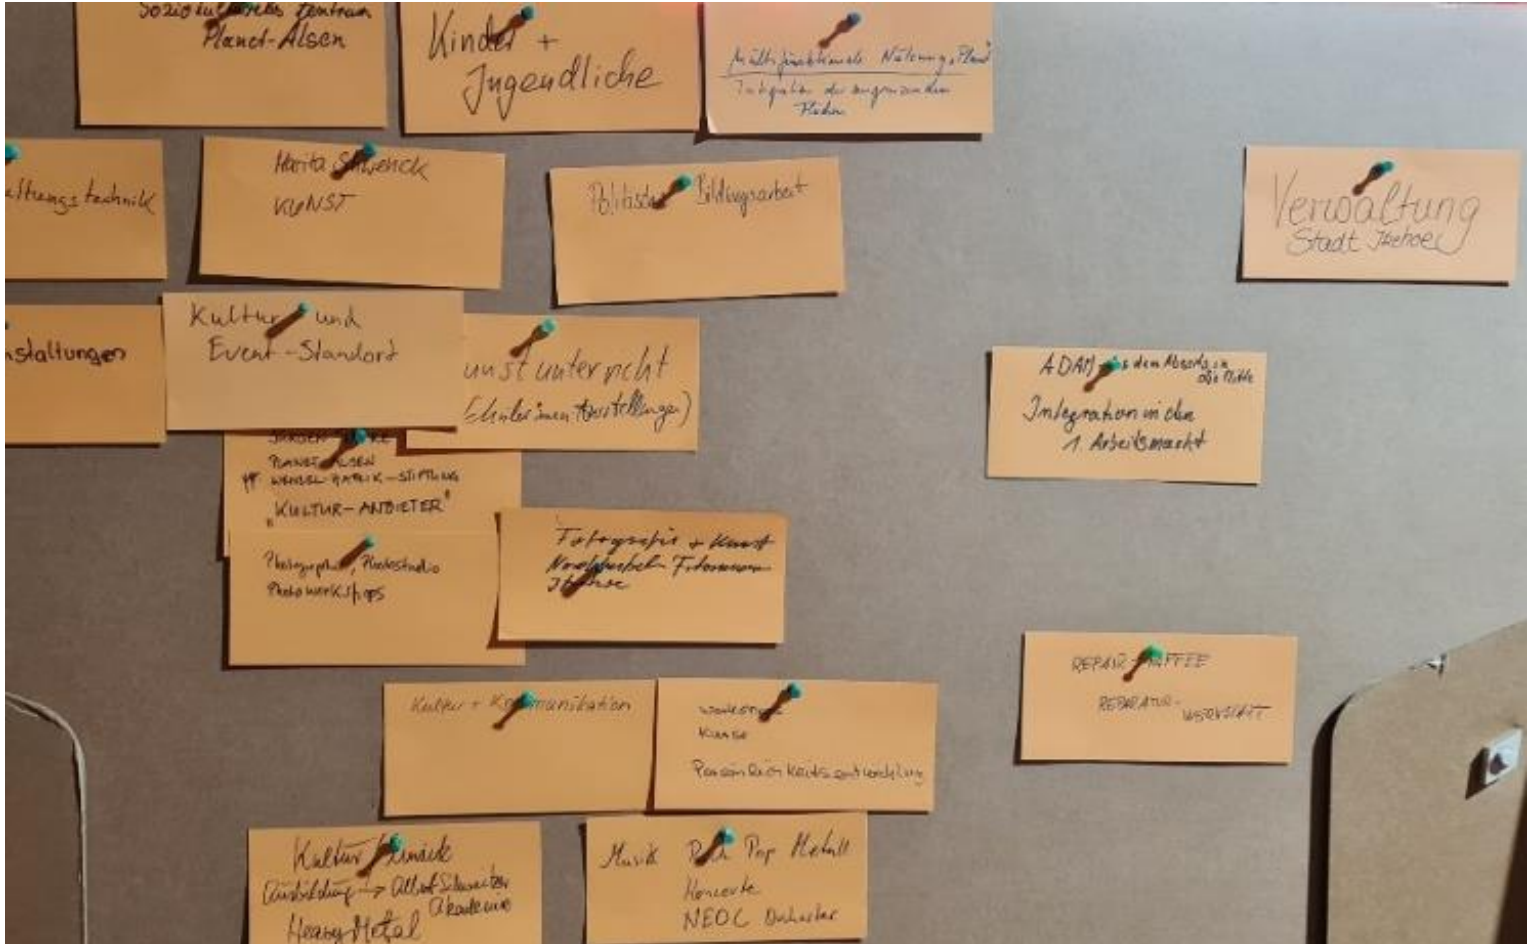 Soziokulturelles Zentrum
Planet-Alsen
Kinder +
Jugendliche
Multifunktionale Nutzung
Integration der angrenzenden
Flächen
altungstechnik
Marita
KUNST
Politische Bildungsarbeit
Verwaltung
Stadt Itzehoe
nstaltungen
Kultur und
Event-Standort
unstunterricht
(Schülerinnen Ausstellungen)
ADAM aus dem Abseits in
die Mitte
Integration in den
1. Arbeitsmarkt
PLANET ALSEN
WENZEL-HABLIK-STIFTUNG
"KULTUR-ANBIETER"
Photographie, Photostudio
Photoworkshops
Fotografie + Kunst
Itzehoe
REPAIR-KAFFEE
REPARATUR-
WERKSTATT
Kultur + Kommunikation
Workshops
Kurse
Persönlichkeitsentwicklung
Kultur
Ausbildung → Albert Schweitzer
Akademie
Heavy Metal
Musik Rock Pop Metall
Konzerte
NEOC